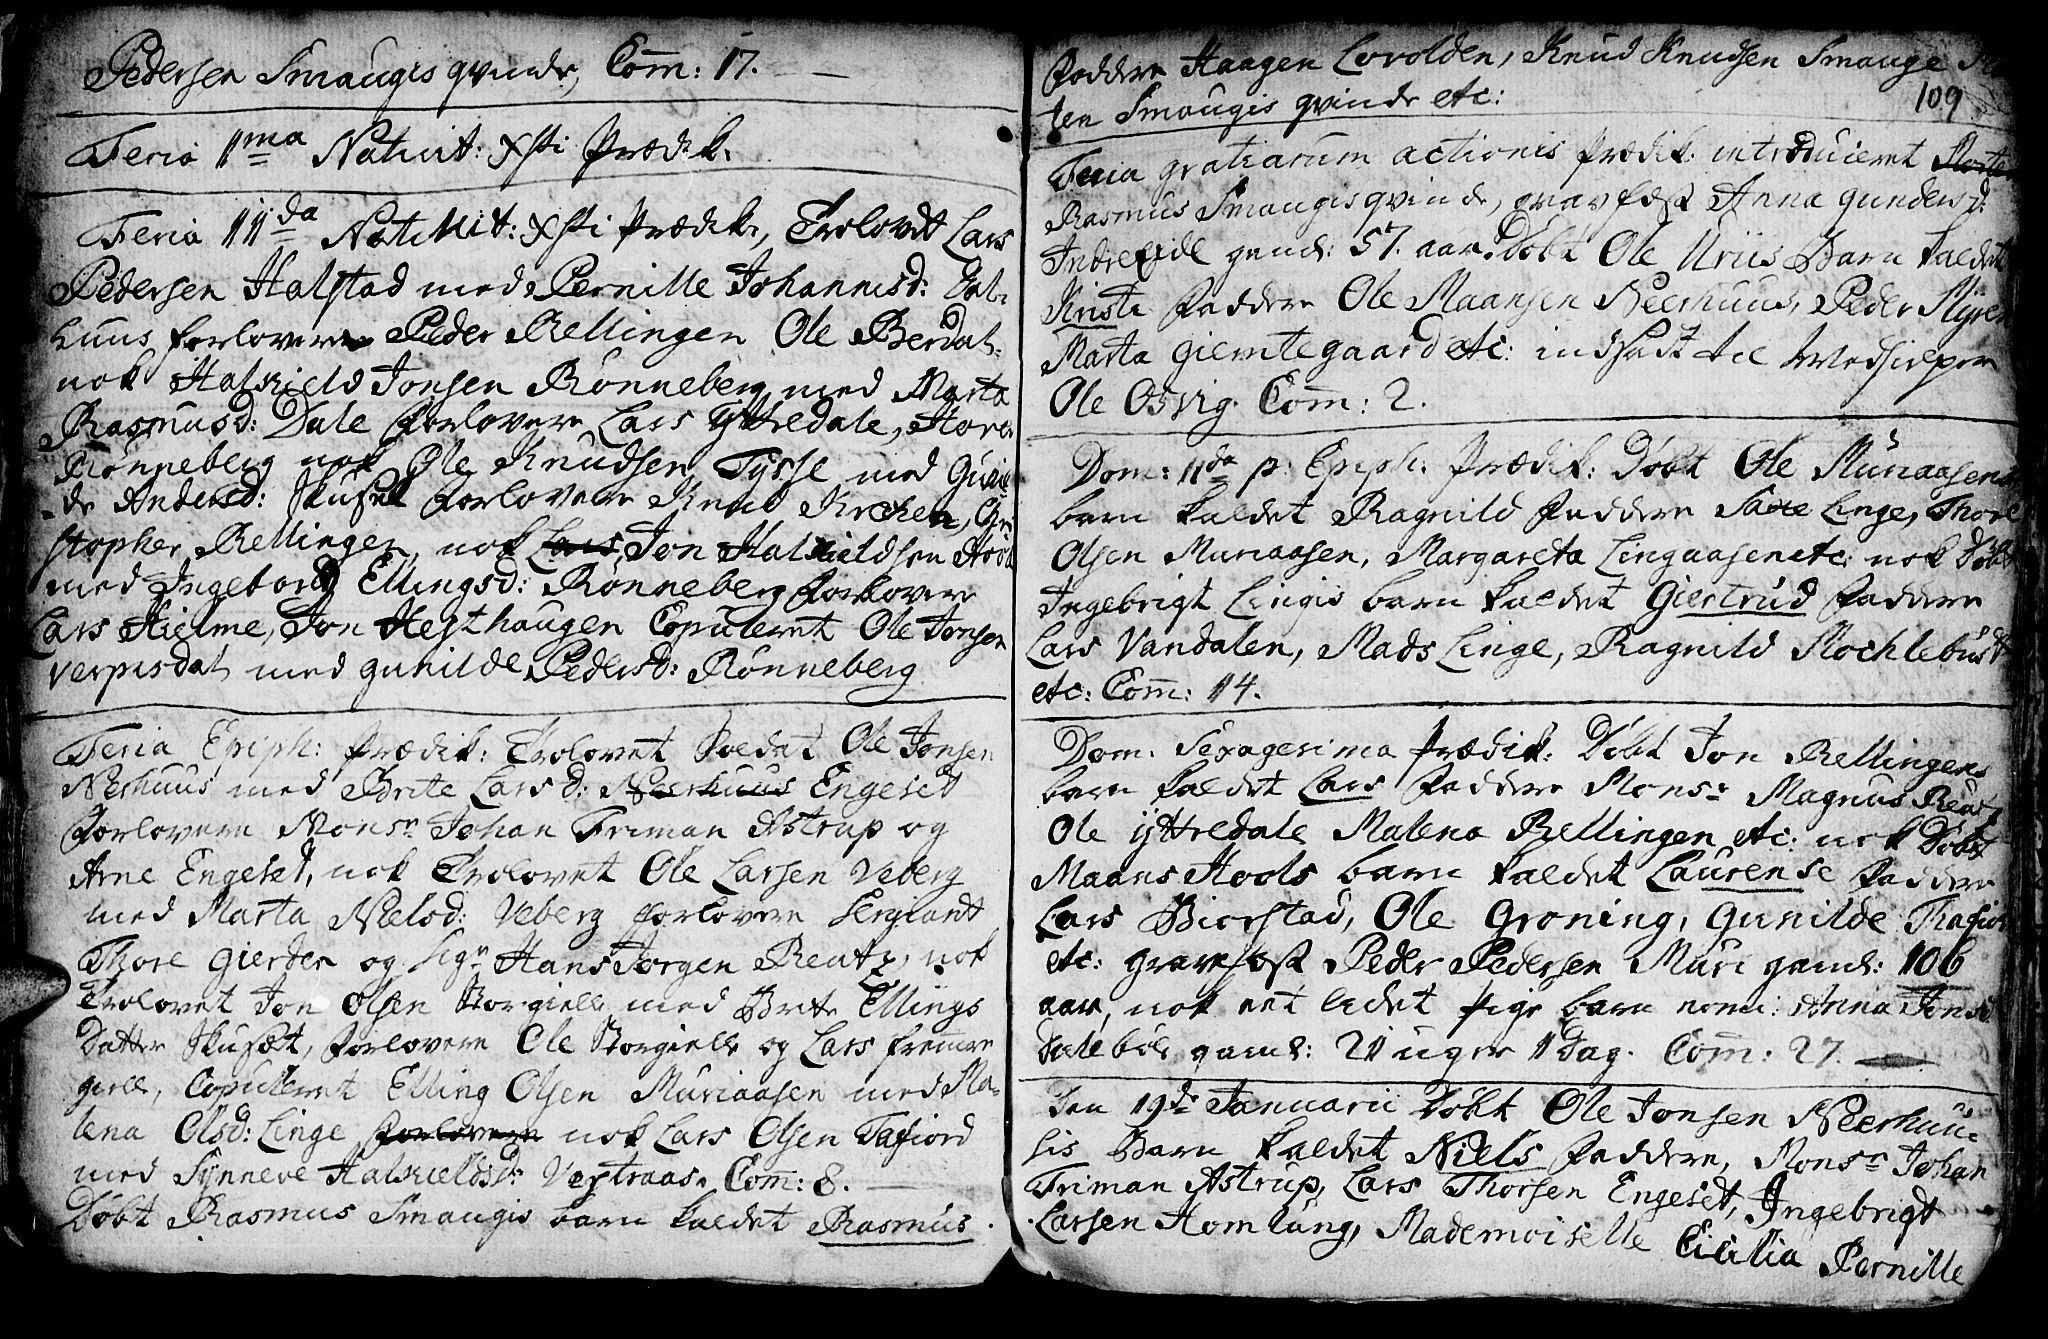 Pedersen Smaugis qvinde, Com̄: 17. —
Feria 1ma Nativit: Xsti Prædik:
Feria 11da Nativit: Xsti Prædik:, Trolovet Lars
Pedersen Halstad med Pernille Johannisd: Dal-
huus forlovere Peder Rellingen Ole Berdal-
nok Halkield Jonsen Rønneberg med Marta
Rasmusd: Dale forlovere Lars Yttredale,
Rønneberg nok Ole Knudsen Tysse med
de Andersd: Skufset forlovere Knud
stopher Rellingen, nok Lars, Jon Halkieldsen
med Ingeborg Ellingsd: Rønneberg forlovere
Lars Hielme, Jon Hesthaugen Copuleret Ole Jonsen
Verpisdal med gunilde Pedersd: Rønneberg
Feria Epiph: Prædik: Trolovet Soldat Ole Jonsen
Nerhuus med Brite Larsd: Neerhuus Engeset
forlovere Monsr Johan Friman Astrup og
Arne Engeset, nok Trolovet Ole Larsen Veberg
med Marta Nielsd: Veberg forlovere Sergiant
Thore gierden og Sigr Hans Jørgen Reutz, nok
Trolovet Jon Olsen Storgielle med Brite Ellings
Datter Skufset, forlovere Ole Storgielle og Lars fremre
giele, Copuleret Elling Olsen Muriaasen med Ma-
lena Olsd: Linge forlovere nok Lars Olsen Tafiord
med Synneve Halkieldsd: Vestraas. Com̄: 8. —
Døbt Rasmus Smaugis barn kaldet Rasmus.
faddere Haagen Lovolden, Knud Knudsen Smauge
ten Smaugis qvinde etc:
109
Feria gratiarum actionis Prædik: introduceret Morten
Rasmus Smaugis qvinde, gravfæst Anna gundersd:
Indreeide gaml: 57. aar. Døbt Ole Uriis Barn kaldet
Kristi faddere Ole Maansen Neerhuus, Peder Myren
Marta giemtegaard etc: indsadt til Medhielper
Ole Osvig. Com̄: 2.
Dom: 11da p: Epiph: Prædik: Døbt Ole Muriaasens
barn kaldet Ragnild faddere Linge, Thore
Olsen Muriaasen, Margareta Lingaasen etc: nok Døbt
Ingebrigt Lingis barn kaldet Giertrud faddere
Lars Vandalen, Mads Linge, Ragnild Mochlebust
etc: Com̄: 14.
Dom. Sexagesima Prædik: Døbt Jon Rellingens
barn kaldet Lars faddere Monsr Magnus
Ole Yttredale Malena Rellingen etc: nok Døbt
Maans Hools barn kaldet Laurense faddere
Lars Biorstad, Ole Groning, Gunilde Tafiord
etc: gravfæst Peder Pedersen Muri gaml: 106
aar, nok eet ledet pige barn nomi: Anna Jonsd:
Dalebøe gaml: 21 uger 1 Dag. Com̄: 27. —
Den 19de Januarii Døbt Ole Jonsen Neerhuu-
sis Barn kaldet Niels faddere, Monsr Johan
Friman Astrup, Lars Thorsen Engeset, Ingebrigt
Larsen Homlung, Mademoiselle Cicilia Pernille